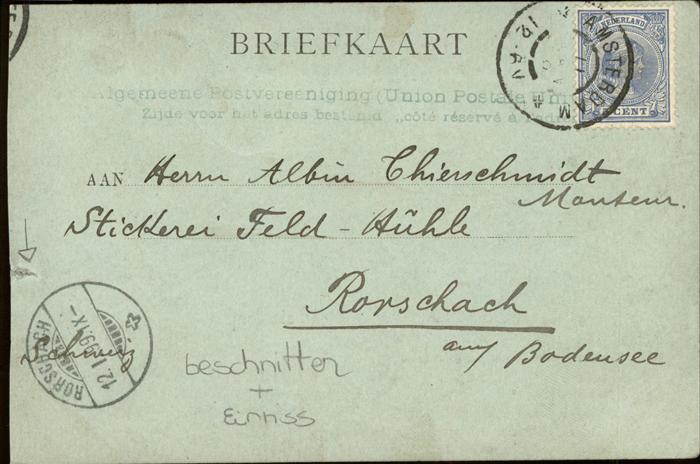 BRIEFKAART
NEDERLAND
CENT
AMSTERDAM
Algemeene Postvereeniging (Union Postale Uni
Zijde voor het adres bestemd „côté réservé à l'adr
AAN Herrn Albin Thierschmidt
Monteur.
Stickerei Feld-Mühle
Rorschach
auf Bodensee
Schweiz
RORSCHACH
12.I.99.IX–
beschnitten
+
Einriss